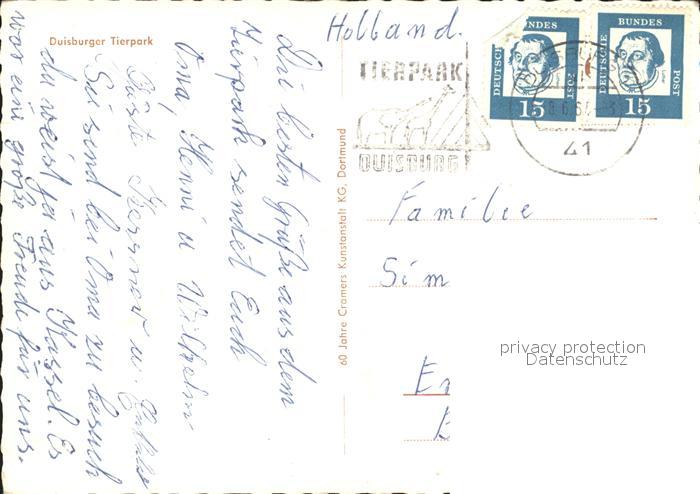 Duisburger Tierpark
Holland.
Die besten Grüße aus dem
Tierpark sendet Euch
Oma, Henni u Wilhelm
Sie sind bei Oma zu besuch
du weist ja aus Kassel. Es
war ein große Freude für uns.
60 Jahre Cramers Kunstanstalt KG, Dortmund
TIERPARK
DUISBURG
DEUTSCHE
BUNDES
POST
15
DEUTSCHE
BUNDES
POST
15
41
Familie
Sim
privacy protection
Datenschutz